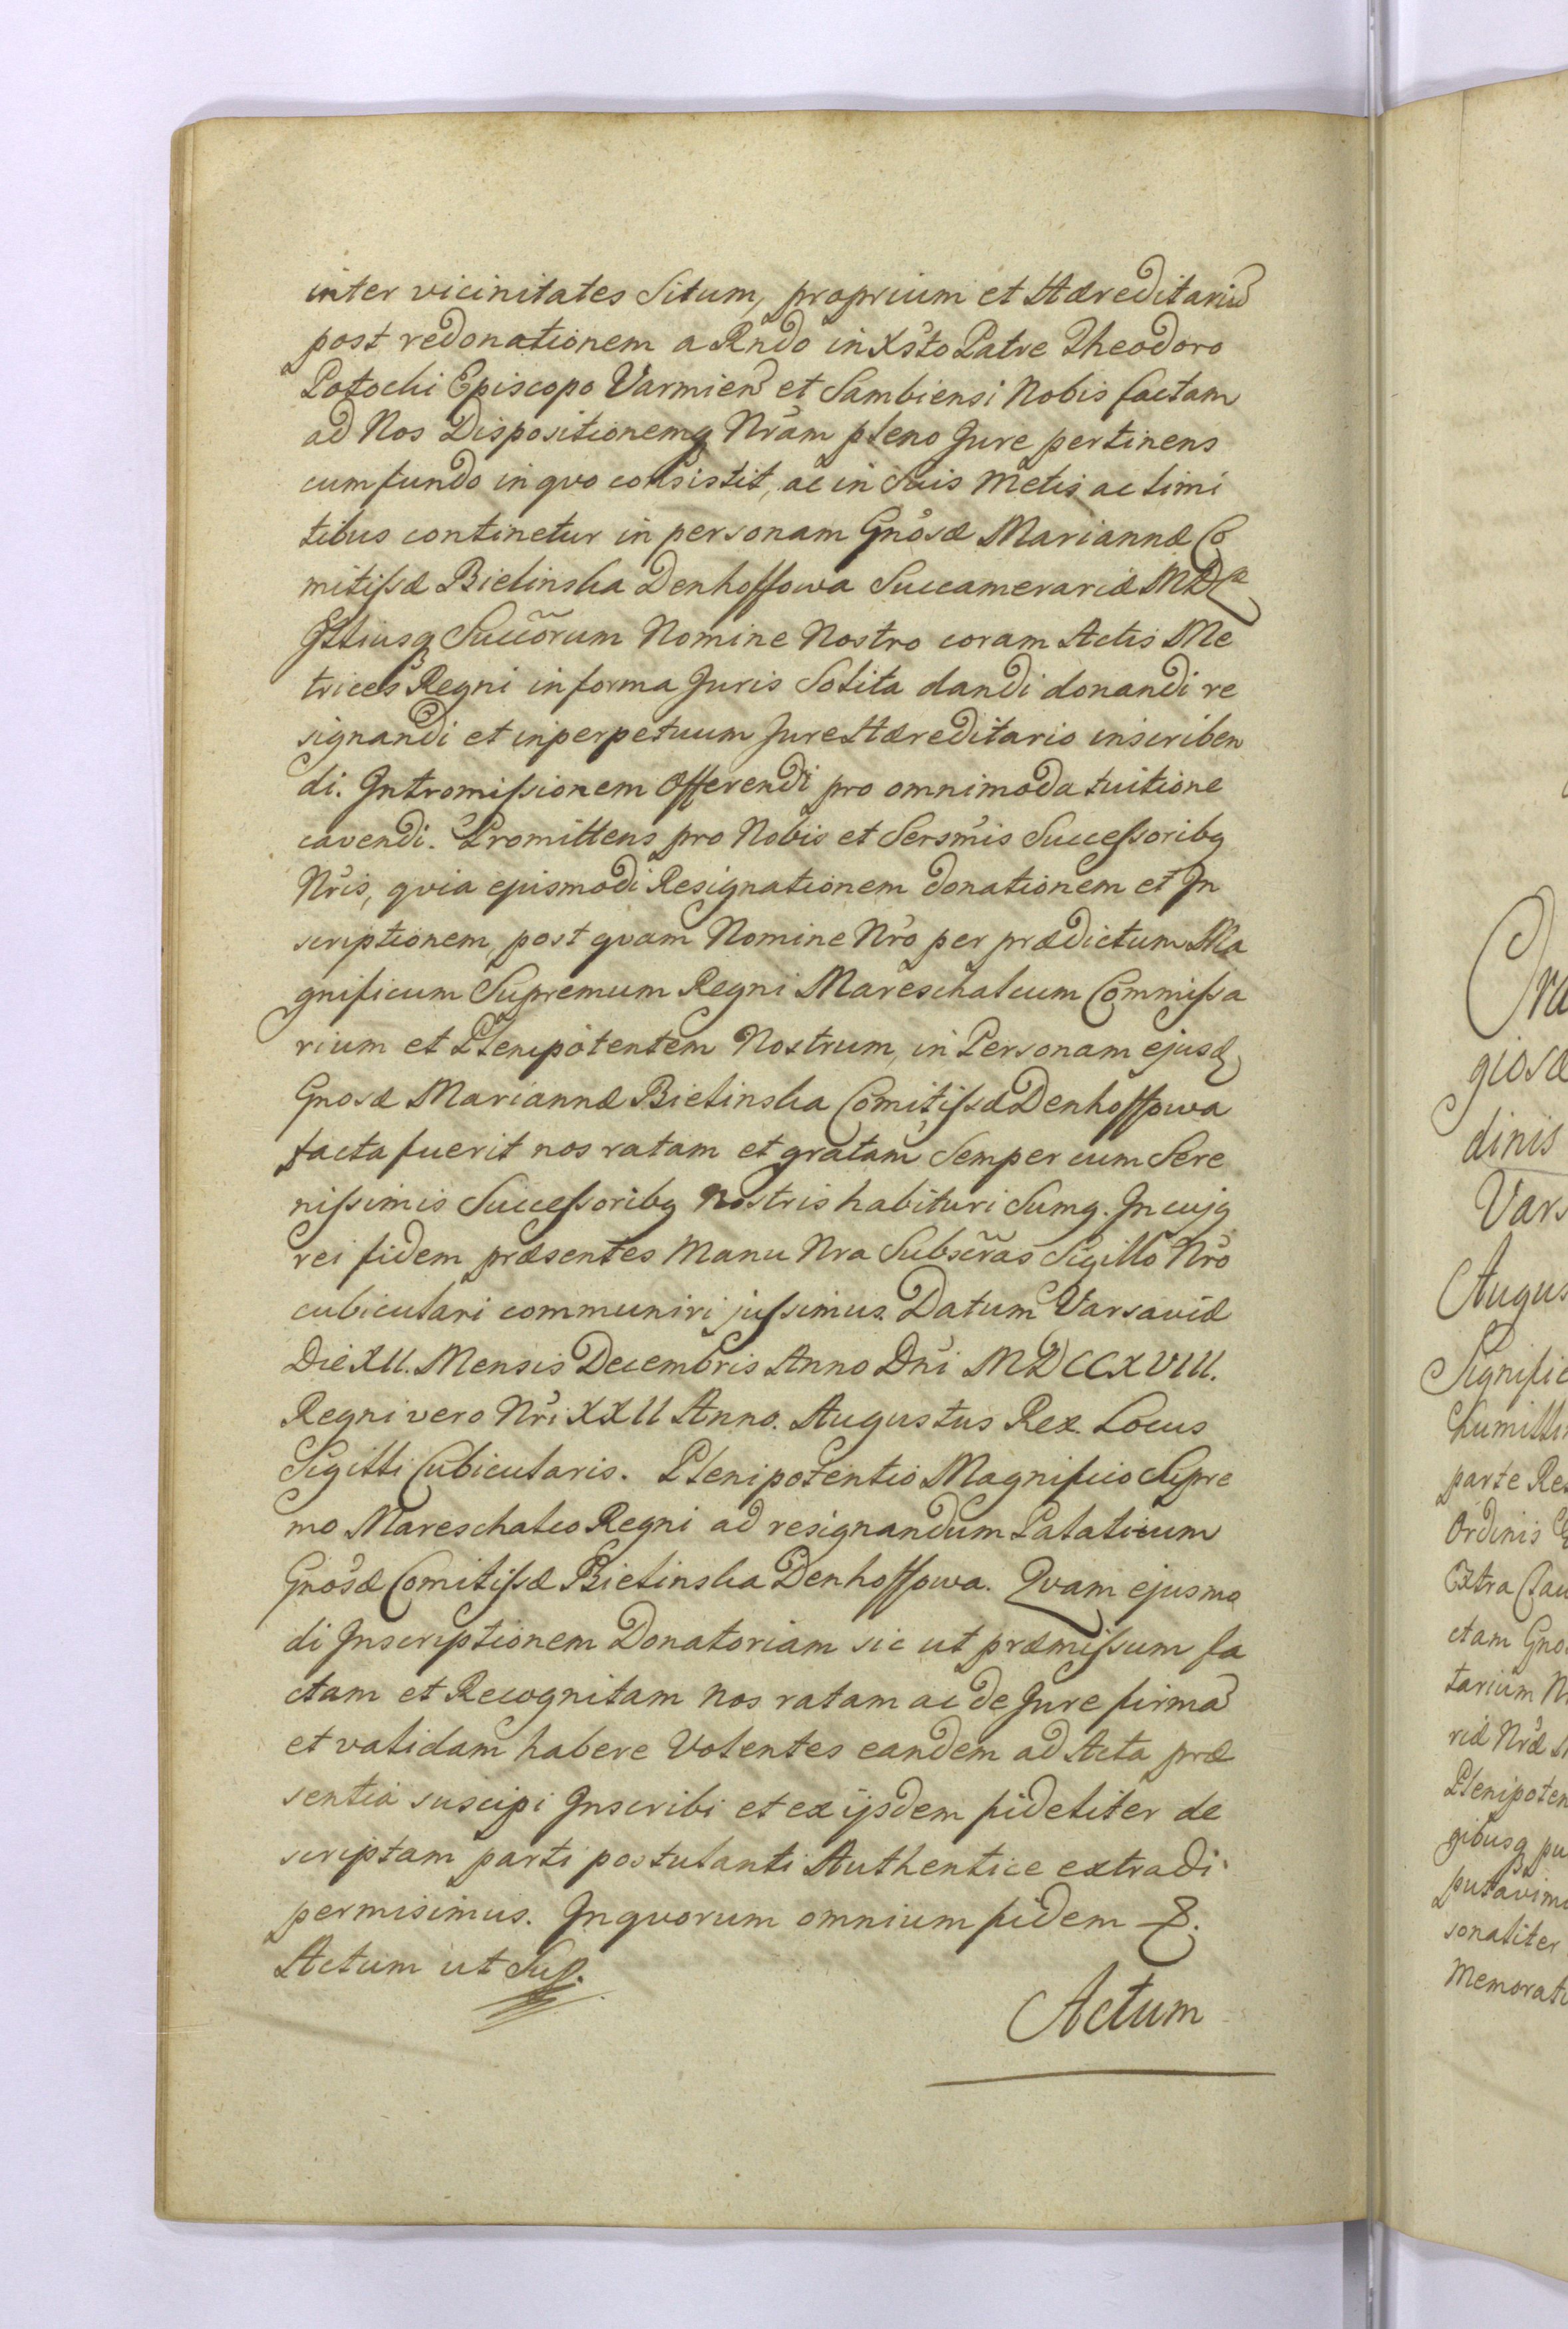 inter vicinitates Situm, proprium et Hæreditariũ
post redonationem a Rndo in Xsto Patre Theodoro
Potocki Episcopo Varmien et Sambiensi Nobis factam
ad Nos Dispositionemq Nram pleno Jure pertinens
cum fundo in qvo consistit, ac in Suis Metis ac limi
tibus continetur in personam Gnosæ Mariannæ Co
mitissæ Bielinska Denhoffowa Succamerariæ MDL
Illiusq Succorum Nomine Nostro coram Actis Me
trices Regni in forma Juris Solita dandi donandi re
signandi et in perpetuum Jure Hæreditario inscriben
di. Intromissionem Offerendi pro omnimoda tuitione
cavendi. Promittens pro Nobis et Sersmis Successoribq
Nris, qvia ejusmodi Resignationem donationem et In
scriptionem, post qvam Nomine Nro per prædictum Ma
gnificum Supremum Regni Mareschalcum Commissa
rium et Plenipotentem Nostrum, in Personam ejusd
Gnosæ Mariannæ Bielinska Comitissæ Denhoffowa
facta fuerit nos ratam et gratam Semper cum Sere
nissimis Successoribq Nostris habituri Sumq. In cujq
rei fidem præsentes Manu Nra Subscras Sigillo Nro
cubiculari communiri jussimus. Datum Varsaviæ
Die XII. Mensis Decembris Anno Dni MDCCXVIII.
Regni vero Nri XXII Anno. Augustus Rex. Locus
Sigilli Cubicularis. Plenipotentio Magnifico Supre
mo Mareschalco Regni ad resignandum Palatium
Gnosæ Comitissæ Bielinska Denhoffowa. Qvam ejusmo
di Inscriptionem Donatoriam sic ut præmissum fa
ctam et Recognitam nos ratam ac de Jure firmã
et validam habere Volentes eandem ad Acta præ
sentia suscipi Inscribi et ex ijsdem fideliter de
scriptam parti postulanti Authentice extradi
permisimus. In qvorum omnium fidem &.
Actum ut Sup.
Actum
giosæ
dinis
Vars
Augus
Signific
humilli
parte Re
Ordinis
Extra
ctam Gno
tarium N
riæ Nræ
Plenipoten
gibusq pu
putavim
sonaliter
Memorat